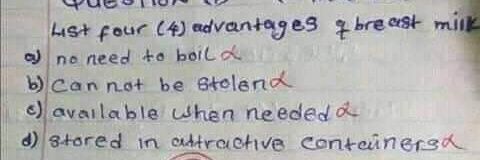 List four (4) advantages of breast milk
a) no need to boil
b) Can not be stolen
c) available when needed
d) stored in attractive containers